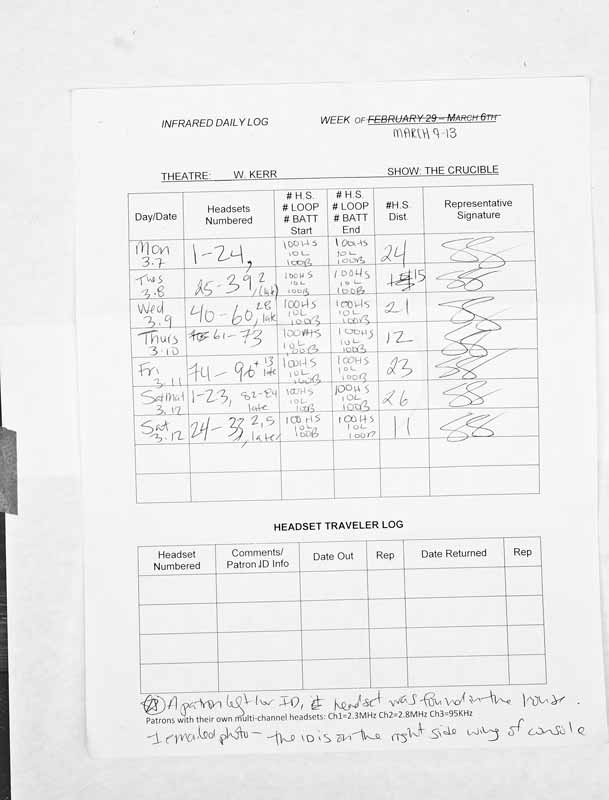 INFRARED DAILY LOG WEEK OF FEBRUARY 29 – MARCH 6TH
MARCH 9-13
THEATRE: W. KERR SHOW: THE CRUCIBLE
Day/Date Headsets Numbered # H.S. # LOOP # BATT Start # H.S. # LOOP # BATT End #H.S. Dist. Representative Signature
Mon 3.7 1-24, 100HS 10L 100B 100HS 10L 100B 24
Tues 3.8 25-39, 2 (late) 100HS 10L 100B 100HS 10L 100B 15
Wed 3.9 40-60, 28 late 100HS 10L 100B 100HS 10L 100B 21
Thurs 3.10 61-73 100HS 10L 100B 100HS 10L 100B 12
Fri 3.11 74-96 + 13 late 100HS 10L 100B 100HS 10L 100B 23
Sat Mat 3.12 1-23, 82-84 late 100HS 10L 100B 100HS 10L 100B 26
Sat 3.12 24-33, 2,5, later 100HS 10L 100B 100HS 10L 100B 11
HEADSET TRAVELER LOG
Headset Numbered Comments/ Patron ID Info Date Out Rep Date Returned Rep
A patron left her ID, headset was found in the house.
Patrons with their own multi-channel headsets: Ch1=2.3MHz Ch2=2.8MHz Ch3=95KHz
I emailed photo – the ID is on the right side wing of console